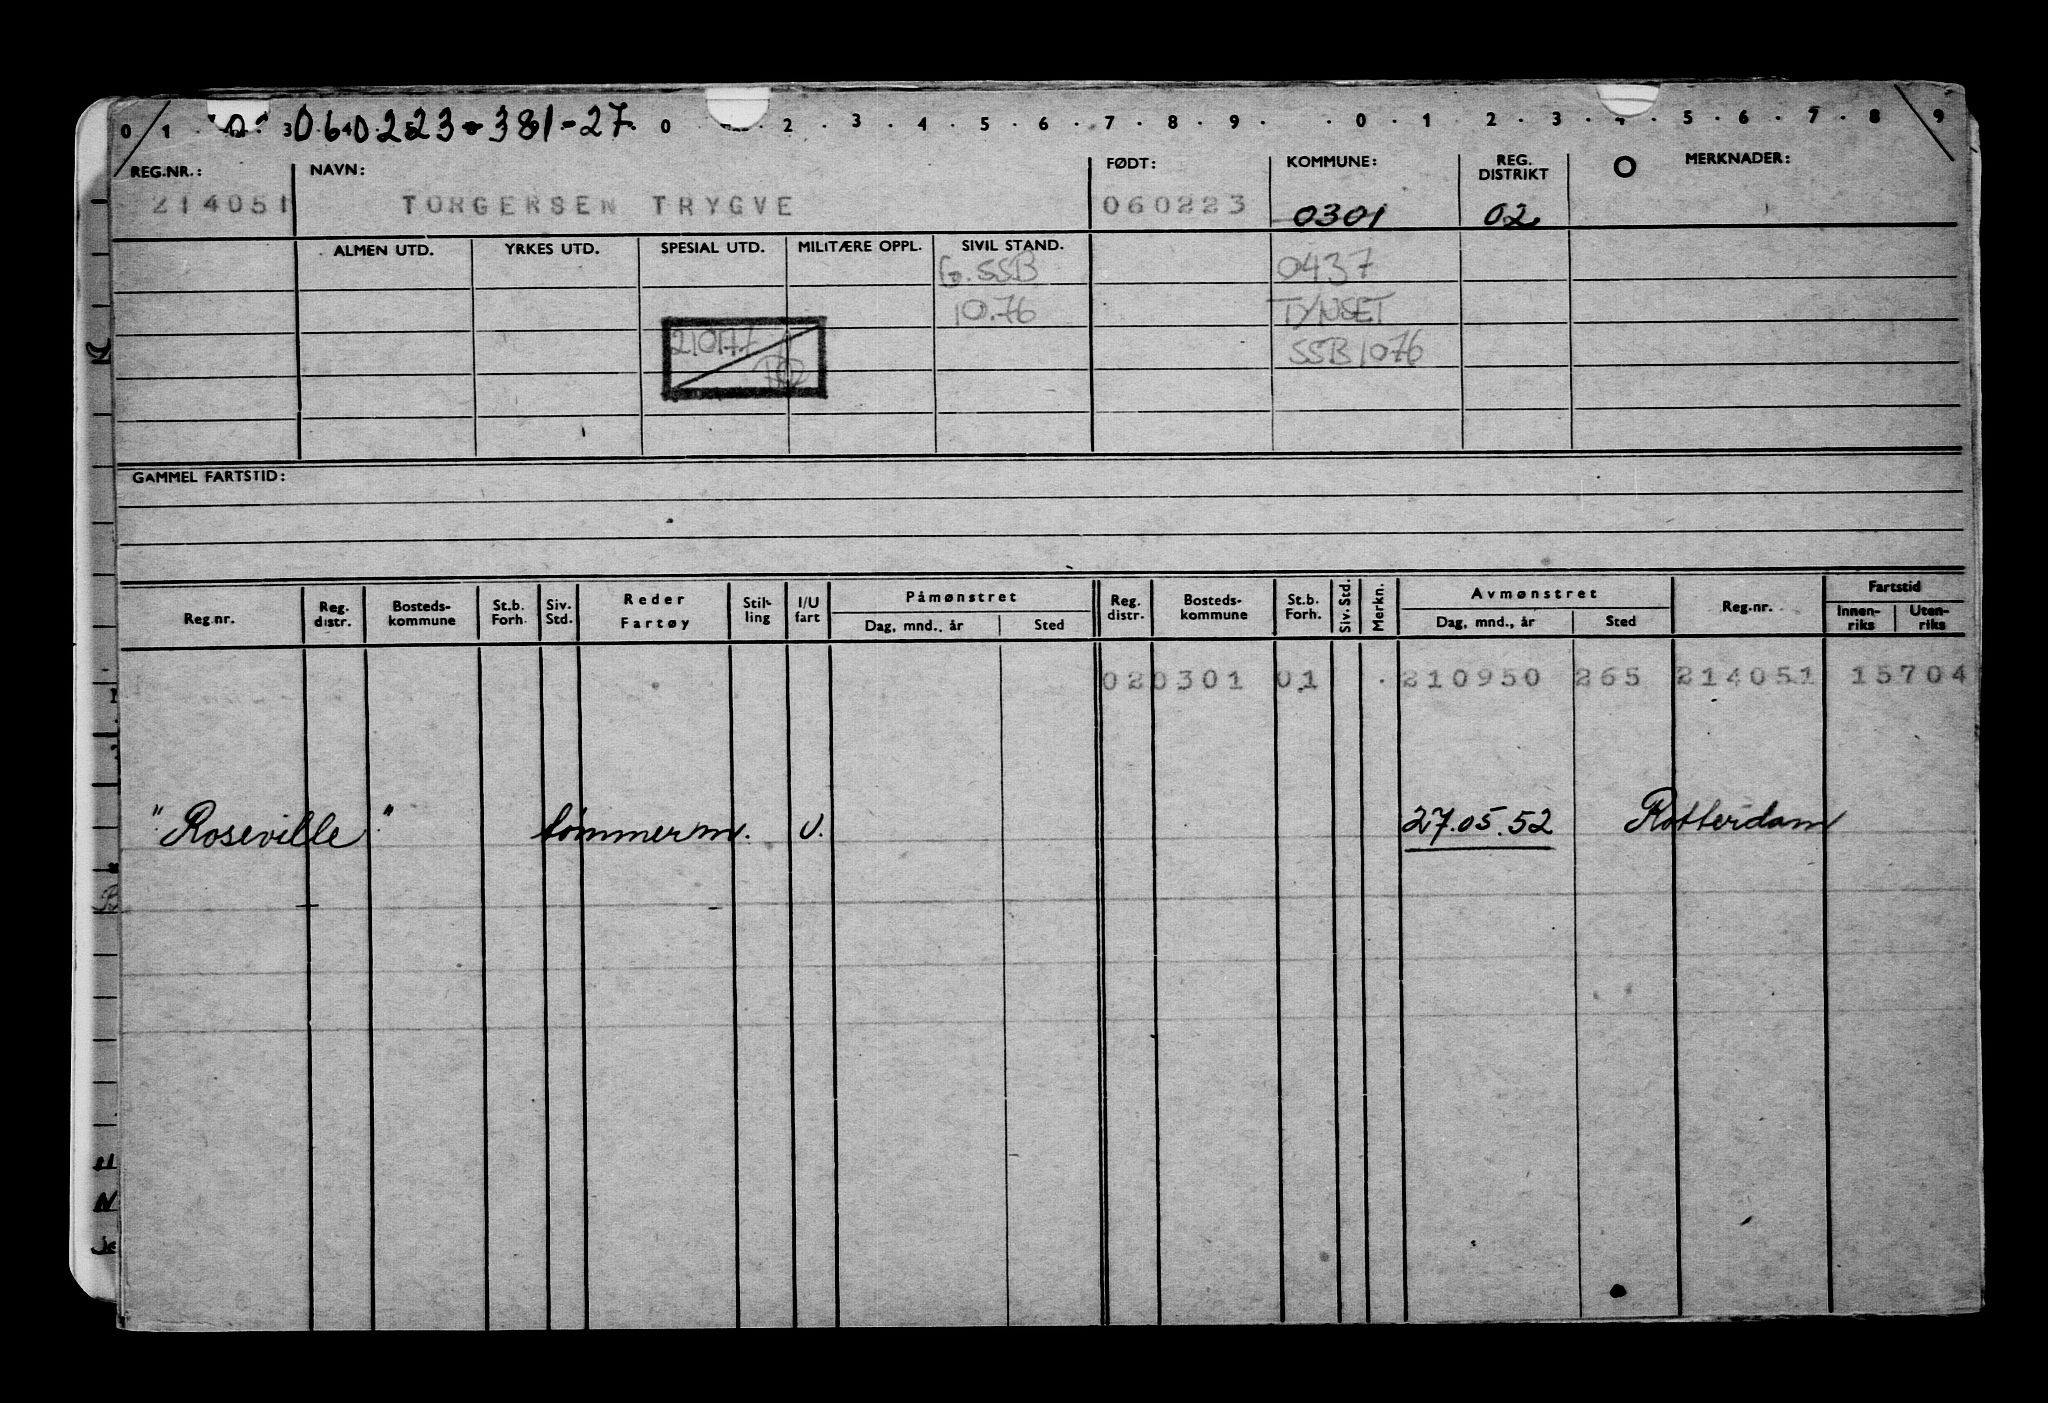 060223-381-27
0 1 3 0 2 3 4 5 6 7 8 9 0 1 2 3 4 5 6 7 8 9
REG.NR.: NAVN: FØDT: KOMMUNE: REG. DISTRIKT MERKNADER:
214051 TORGERSEN TRYGVE 060223 0301 02
ALMEN UTD. YRKES UTD. SPESIAL UTD. MILITÆRE OPPL. SIVIL STAND.
G. SSB 0437
10.76 TYNSET
210177 SSB 1076
GAMMEL FARTSTID:
Reg.nr. Reg. distr. Bosteds-kommune St.b. Forh. Siv. Std. Reder Fartøy Stil-ling I/U fart Påmønstret Dag, mnd., år Sted Reg. distr. Bosteds-kommune St.b. Forh. Siv. Std. Merkn. Avmønstret Dag, mnd., år Sted Reg.nr. Fartstid Innen-riks Uten-riks
02 0301 01 210950 265 214051 15704
"Roseville" tømmerm. U. 27.05.52 Rotterdam